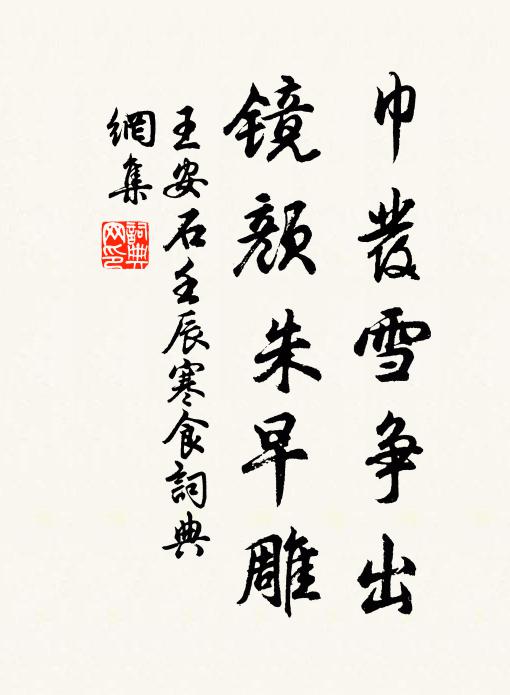 巾發雪争出
镜颜朱早雕
王安石壬辰寒食詞典
網集
詞典网印